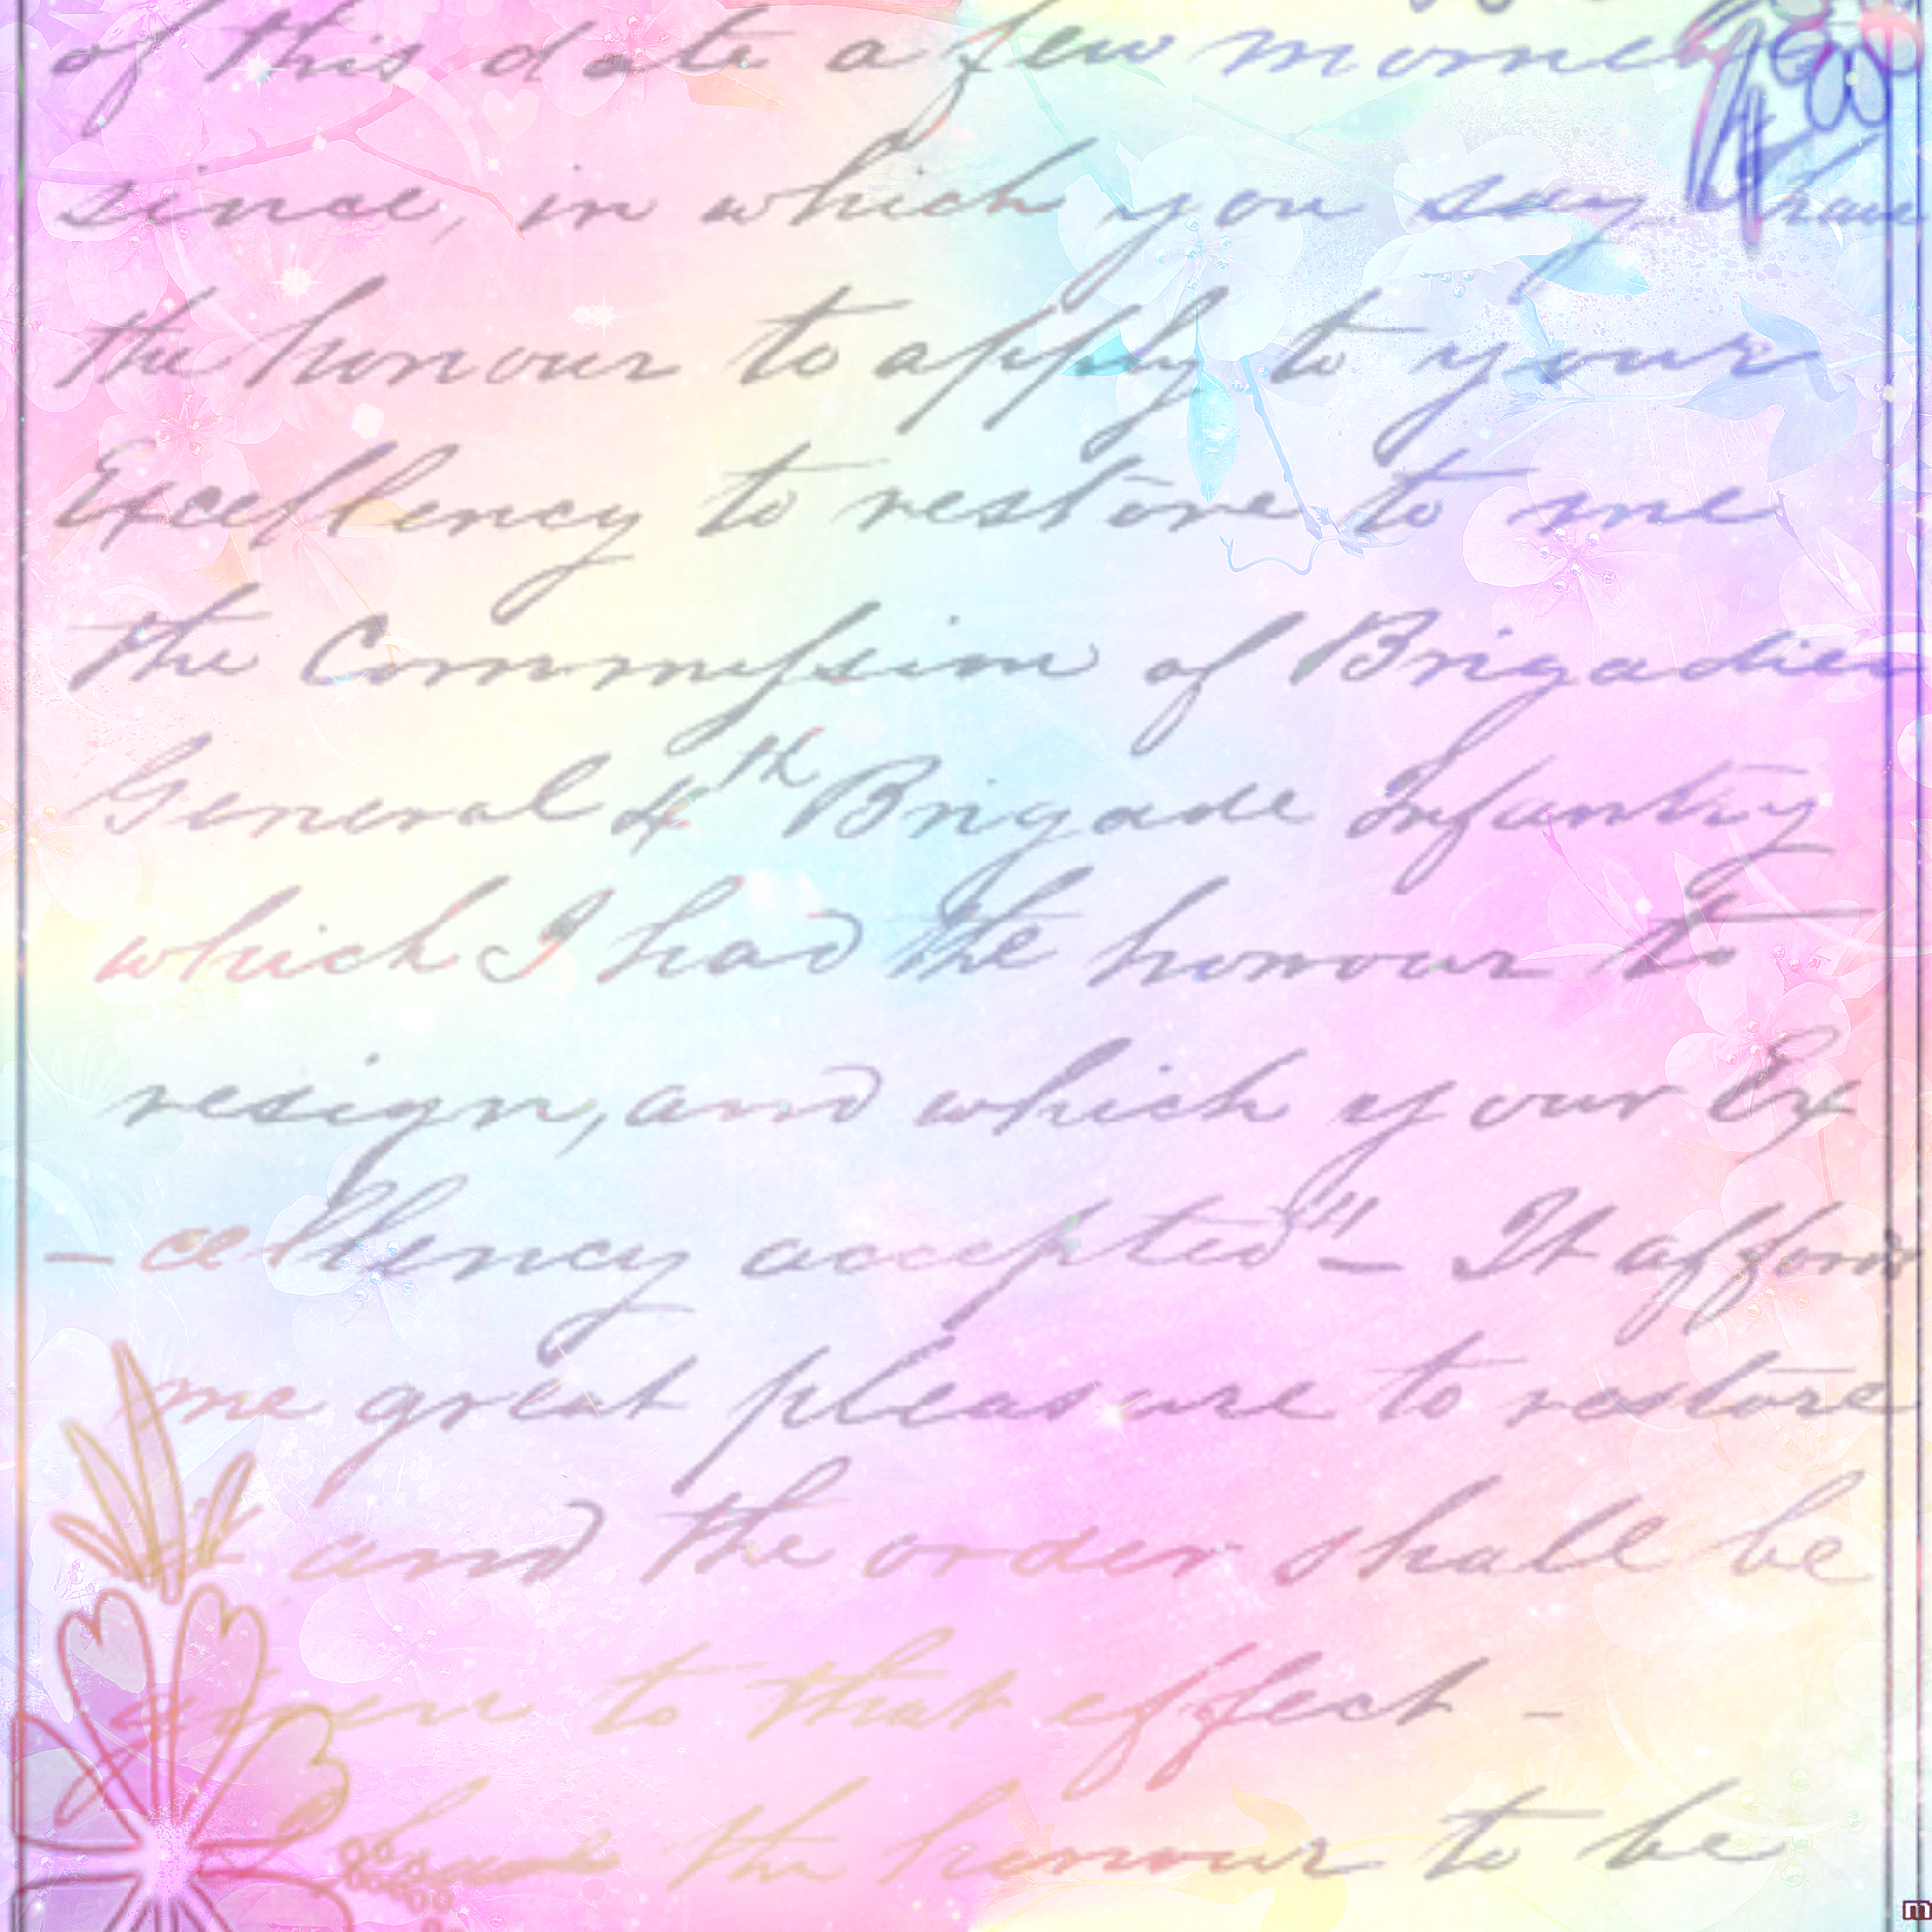 of this date a few
since, in which you say have
the honour to apply to your
Excellency to restore to me
the Commission of Brigadier
General 4th Brigade Infantry
which I had the honour to
resign, and which your Ex
-cellency accepted" - It affords
me great pleasure to restore
and the order shall be
given to that effect -
have the honour to be